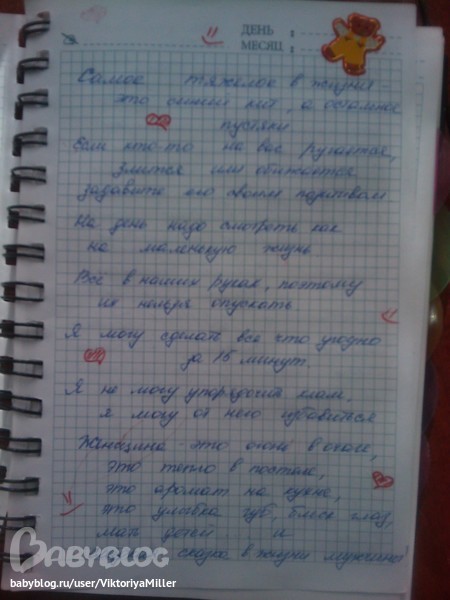 ДЕНЬ :
МЕСЯЦ :
Самое тяжелое в жизни -
это синий кит, а остальное
пустяки
Если кто-то на вас ругается,
злится или обижается
задавите его своим позитивом
На день надо смотреть как
на маленькую жизнь
Всё в наших руках, поэтому
их нельзя опускать
Я могу сделать все что угодно
за 15 минут.
Я не могу упорядочить хлам,
я могу от него избавиться
Женщина - это огонь в очаге,
это тепло в постели,
это аромат на кухне,
это улыбка губ, блеск глаз,
мать детей и
сказка в жизни мужчины
BABYBLOG
babyblog.ru/user/ViktoriyaMiller